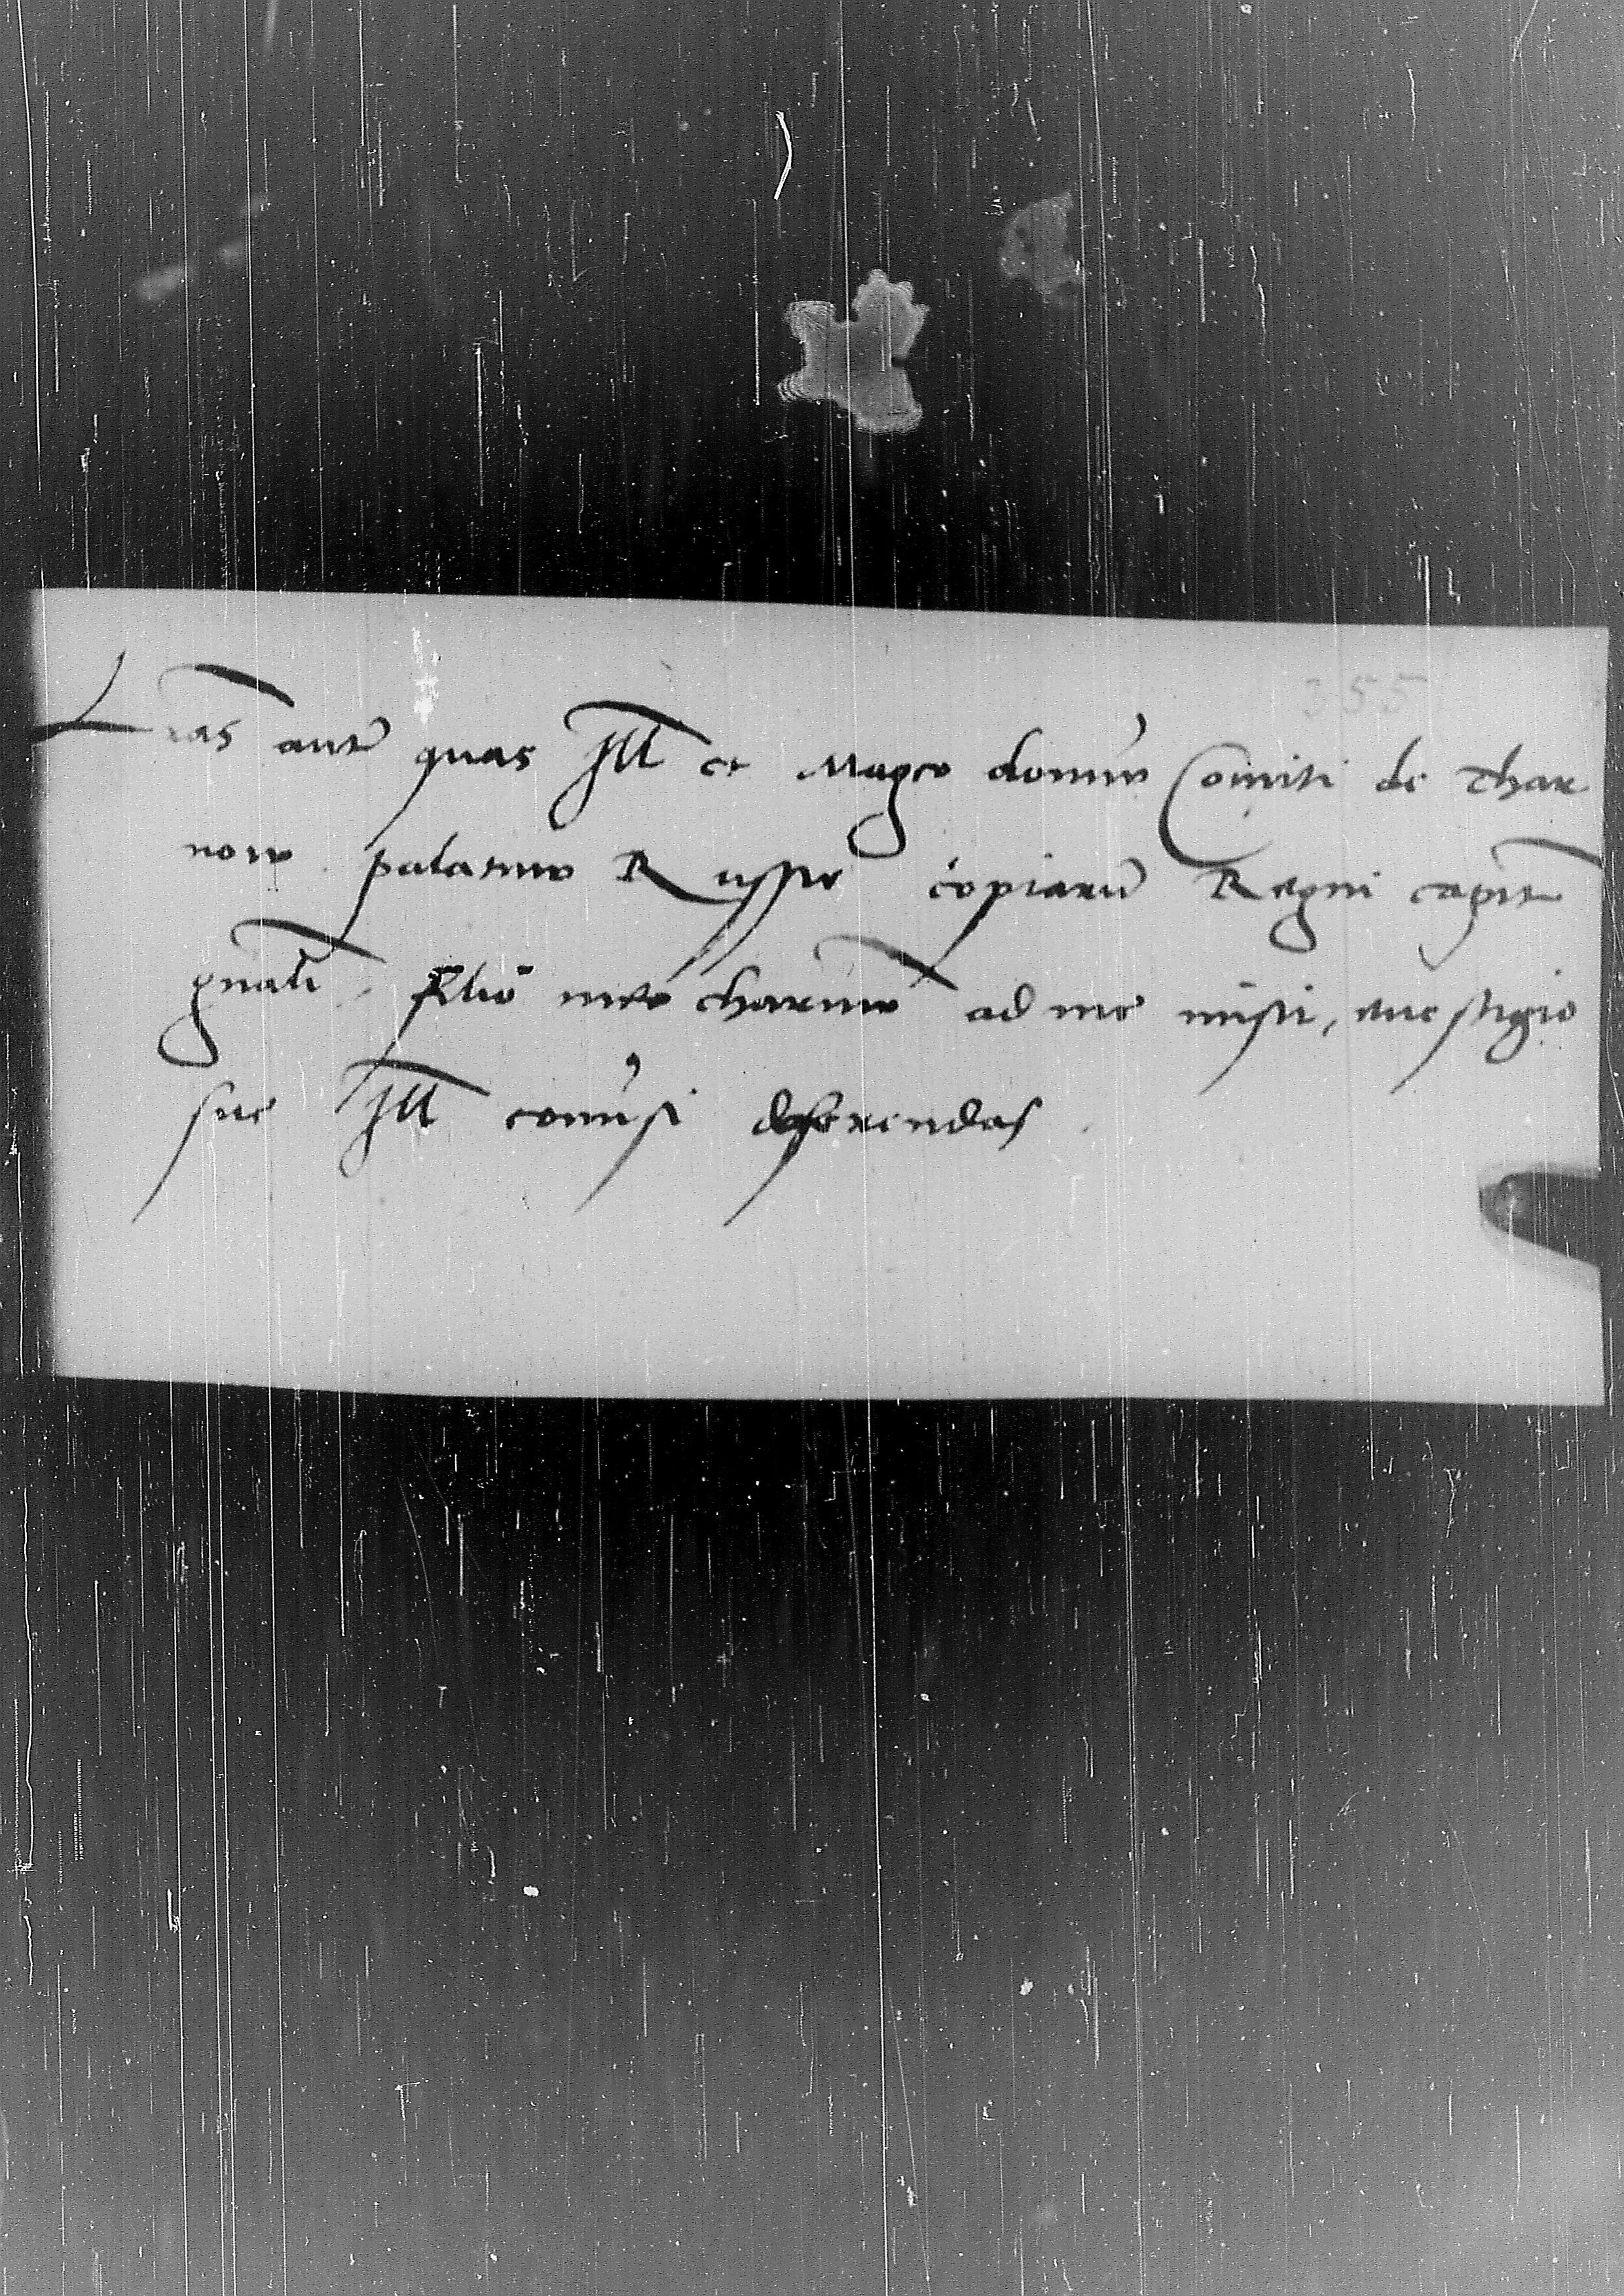 355
Lras autē quas Ill et Magco domino Comiti de Thar
now palatino Russie copiarū Regni capit
gnāli filio meo charmo ad me misit, e vestigio
sue Ill comisi deferendas